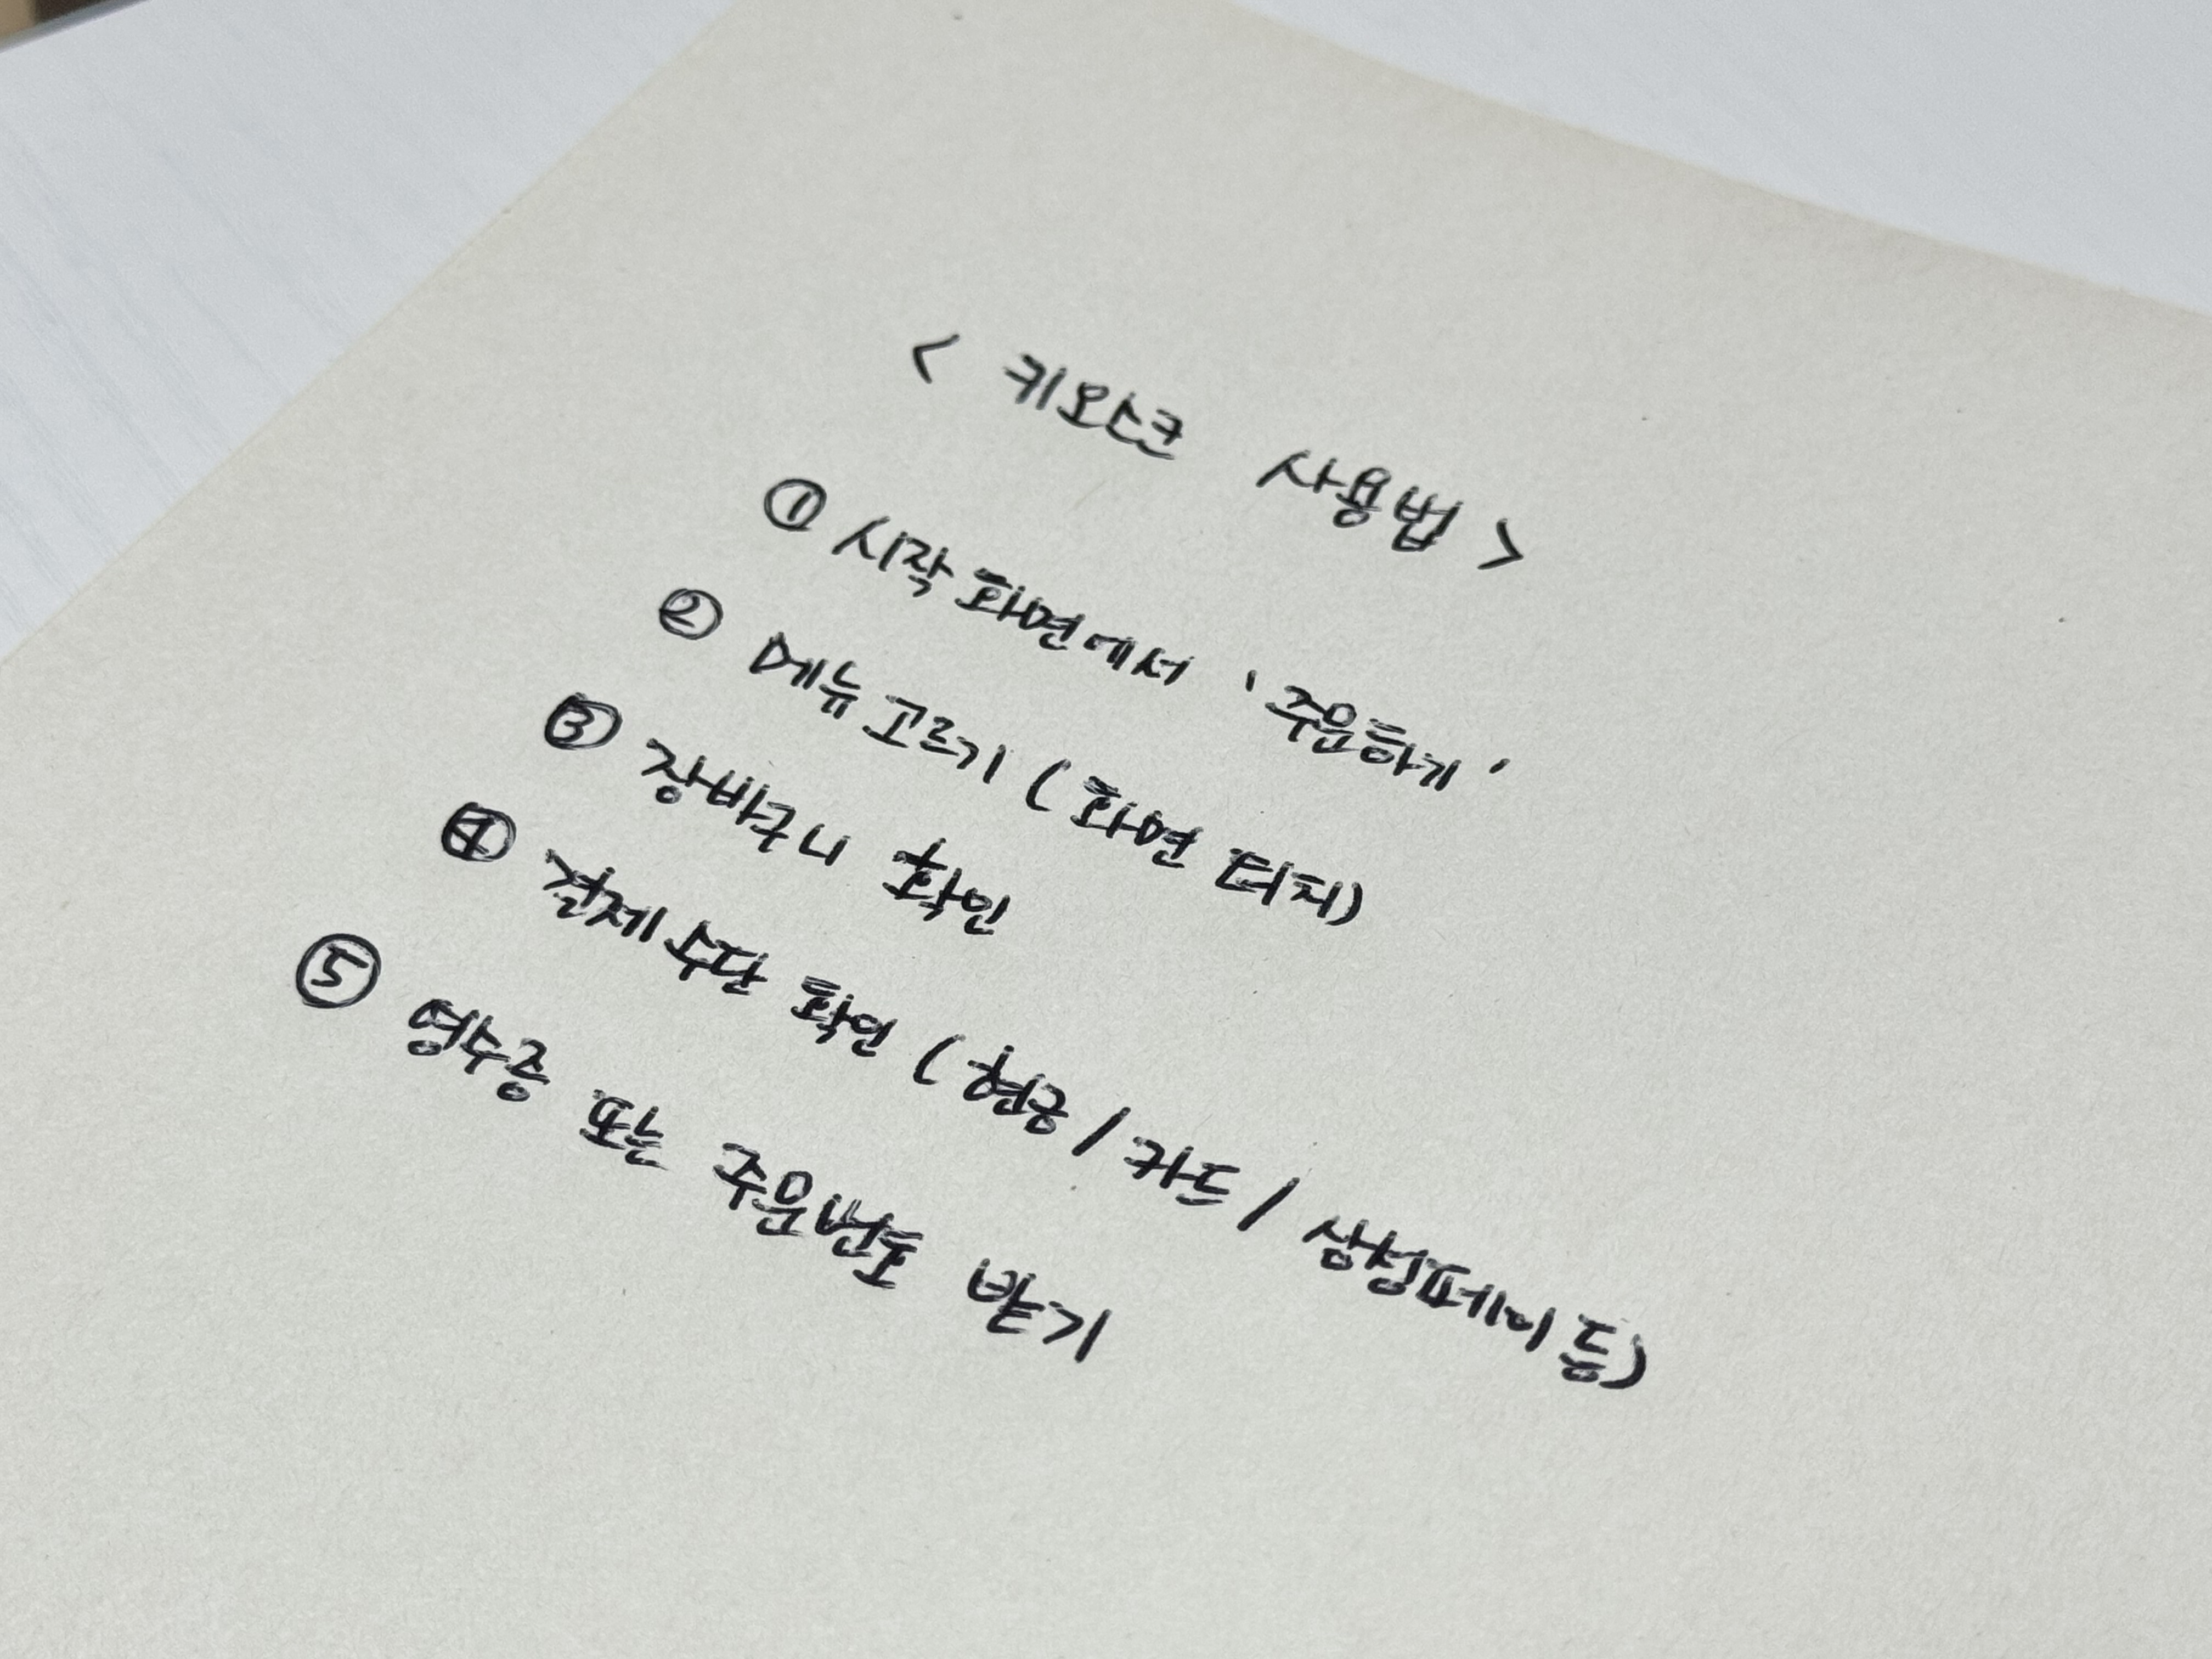 < 키오스크 사용법 >
① 시작 화면에서 '주문하기'
② 메뉴 고르기 (화면 터치)
③ 장바구니 확인
④ 결제 수단 확인 (현금 / 카드 / 삼성페이 등)
⑤ 영수증 또는 주문번호 받기